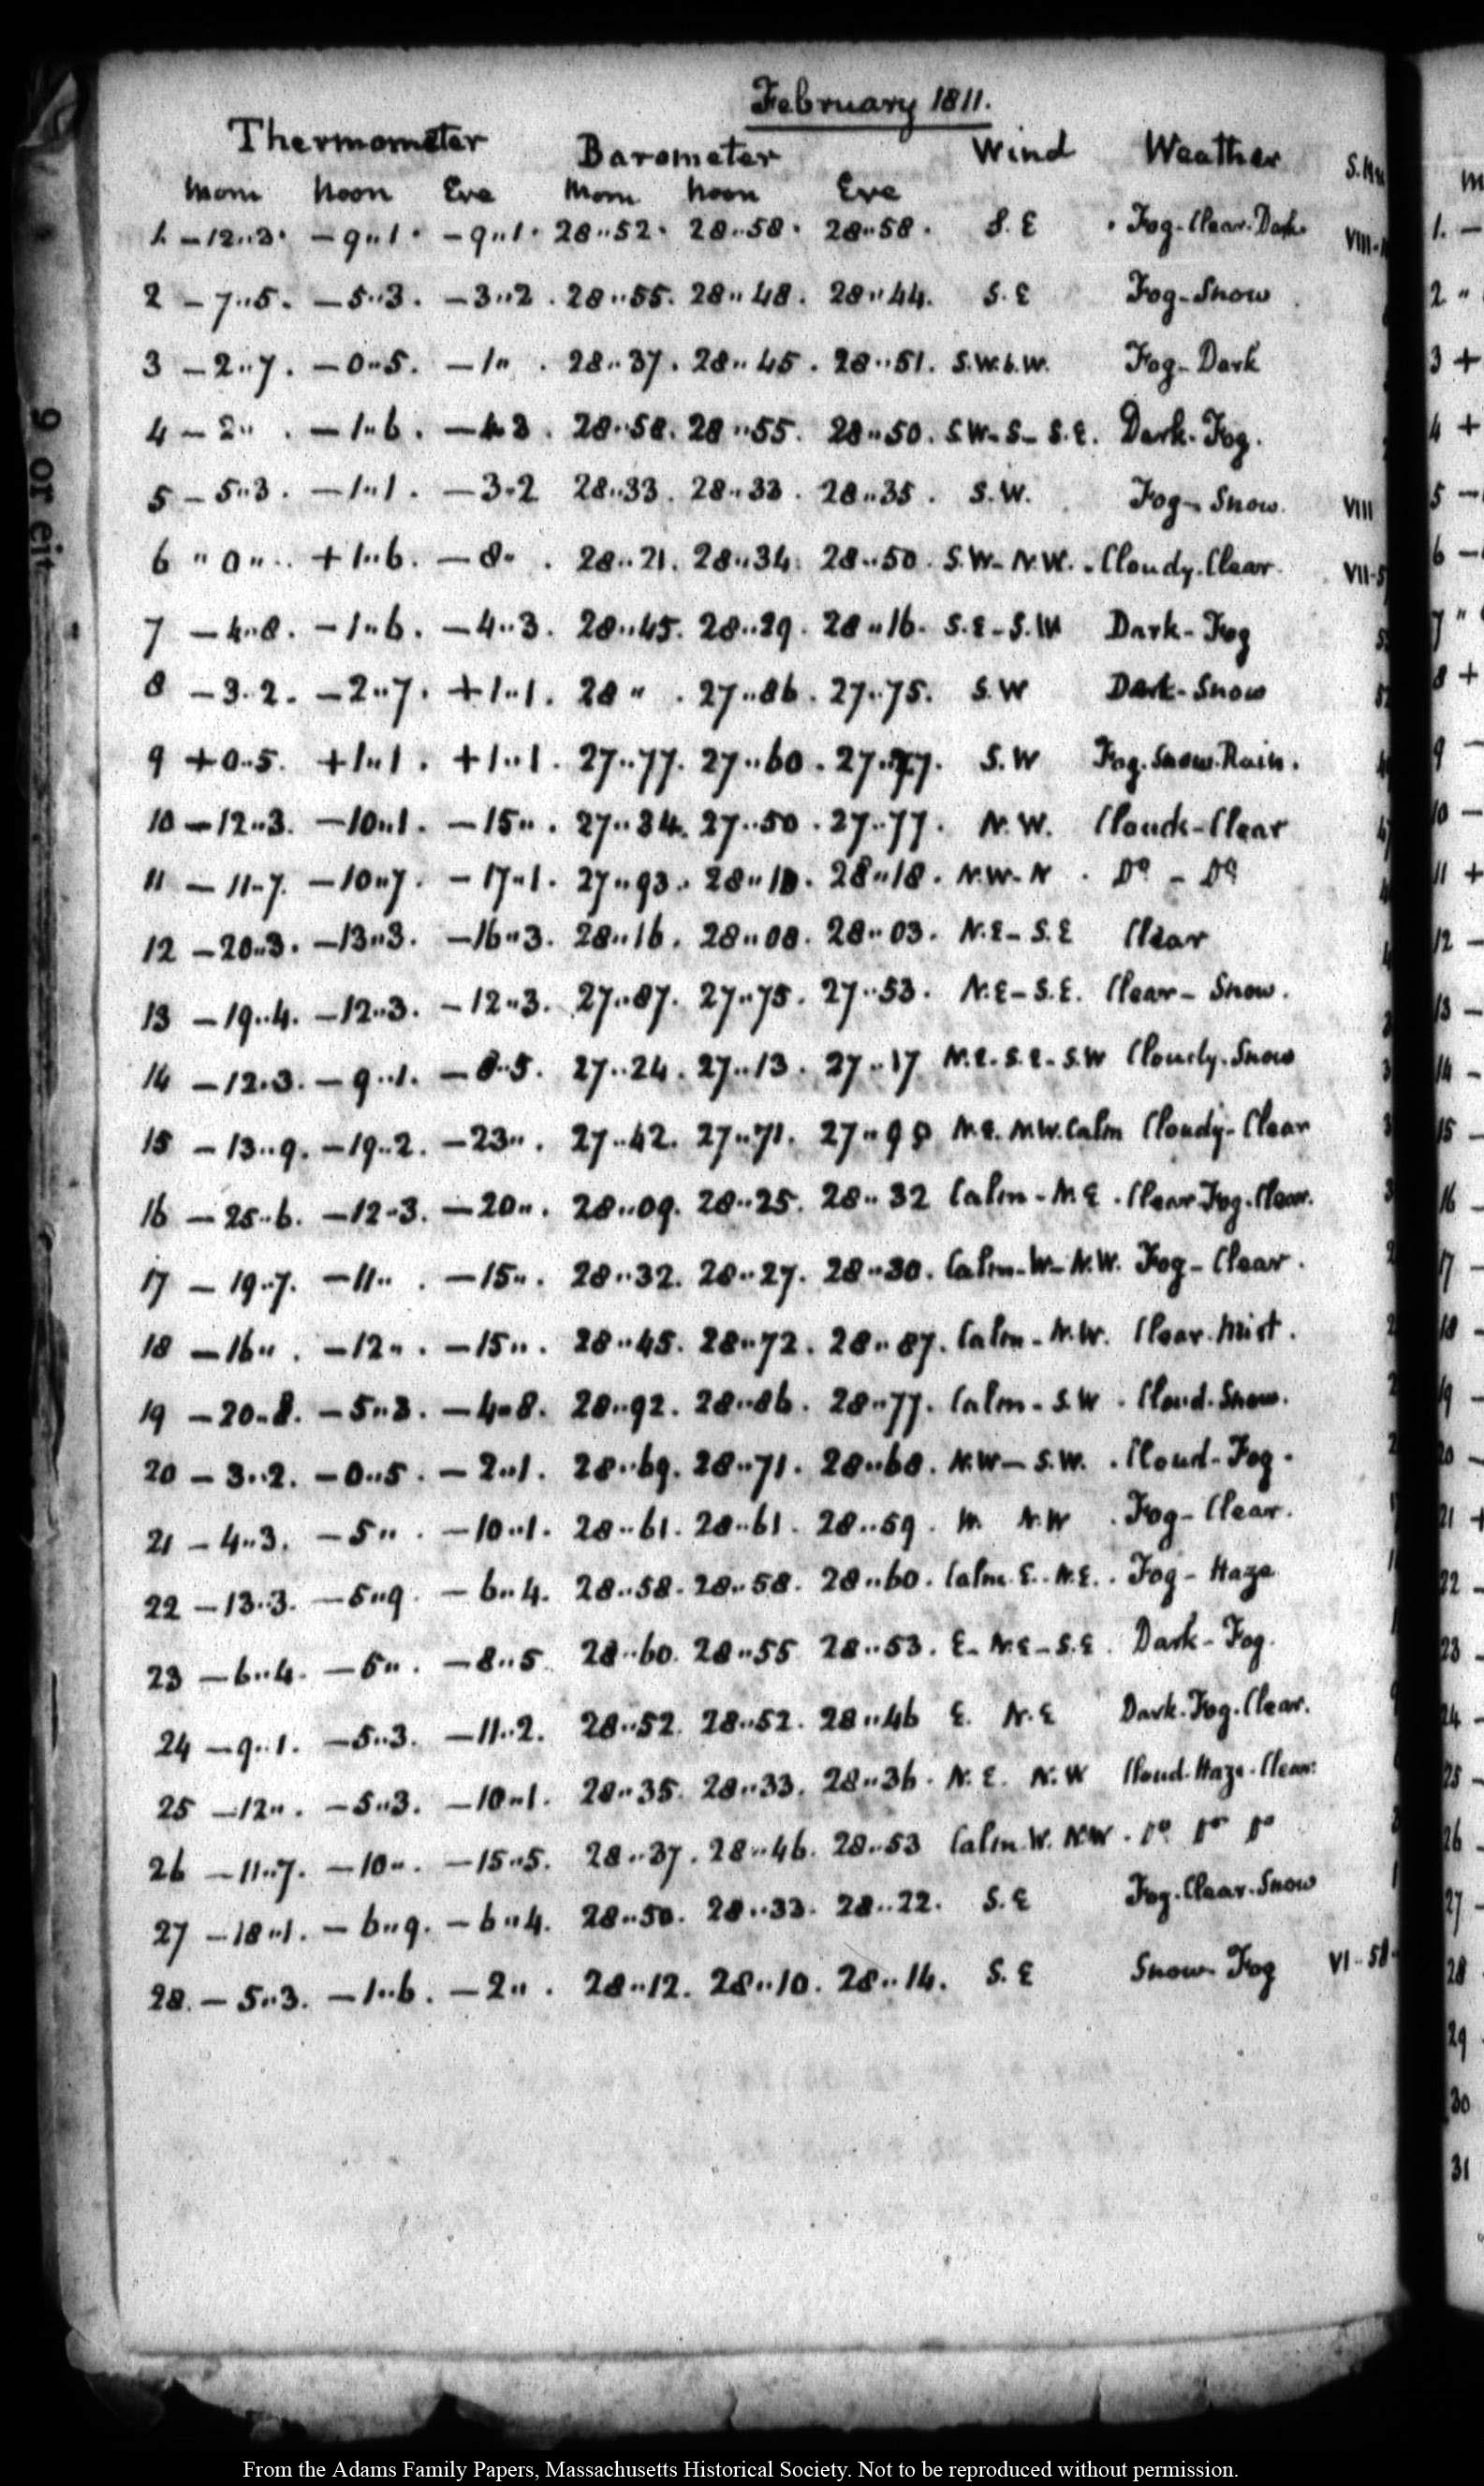 February 1811.
Thermometer Barometer Wind Weather
Morn Noon Eve Morn Noon Eve
1. -12..3. -9..1. -9..1. 28..52. 28..58. 28..58. S.E. Fog-Clear-Dark
2 -7..5. -5..3. -3..2. 28..55. 28..48. 28..44. S.E Fog-Snow
3 -2..7. -0..5. -1.. . 28..37. 28..45. 28..51. S.W.b.W. Fog-Dark
4 -2.. . -1..6. 28..58. 28..55. 28..50. S.W-S-S.E. Dark-Fog.
5 -5..3. -1..1. -3.2 28..33. 28..33. 28..35. S.W. Fog-Snow. VIII
6 " 0.. . +1..6. -8.. . 28..21. 28..34. 28..50. S.W-N.W. Cloudy.Clear. VII-5
7 -4..8. -1..6. -4..3. 28..45. 28..29. 28..16. S.E-S.W Dark-Fog
8 -3.2. -2..7. +1..1. 28 " . 27..86. 27..75. S.W Dark-Snow
9 +0..5. +1..1. +1..1. 27..77. 27..60. S.W Fog.Snow.Rain.
10 -12..3. -10..1. -15.. . 27..34. 27..50. 27..77. N.W. Cloud-Clear
11 -11..7. -10..7. -17..1. 27..93. 28..18. N.W-N. Do - Do
12 -20..3. -13..3. -16..3. 28..16. 28..08. 28..03. N.E-S.E Clear
13 -19..4. -12..3. -12..3. 27..87. 27..75. 27..53. N.E-S.E. Clear-Snow.
14 -12..3. -9..1. -8..5. 27..24. 27..13. 27..17 N.E.S.E-S.W Cloudy.Snow
15 -13..9. -19..2. -23.. . 27..42. 27..71. N.E. N.W. Calm Cloudy-Clear
16 -25..6. -12..3. -20.. . 28..09. 28..25. 28..32 Calm-N.E. Clear Fog.Clear.
17 -19..7. -11.. . -15.. . 28..32. 28..27. 28..30. Calm-W-N.W. Fog-Clear.
18 -16.. . -12.. . -15.. . 28..45. 28..72. 28..87. Calm-N.W. Clear.Mist.
19 -20..8. -5..3. -4..8. 28..92. 28..86. 28..77. Calm-S.W. Cloud.Snow.
20 -3..2. -0..5. -2..1. 28..69. 28..71. 28..68. N.W-S.W. Cloud-Fog.
21 -4..3. -5.. . -10..1. 28..61. 28..61. 28..59. W. N.W. Fog-Clear.
22 -13..3. -5..9. -6..4. 28..58. 28..58. 28..60. Calm.E..N.E. Fog-Haze
23 -6..4. -5.. . -8..5. 28..60. 28..55 28..53. E-N.E-S.E. Dark-Fog.
24 -9..1. -5..3. -11..2. 28..52. 28..52. 28..46 E. N.E Dark.Fog.Clear.
25 -12.. . -5..3. -10..1. 28..35. 28..33. 28..36. N.E. N.W Cloud.Haze.Clear.
26 -11..7. -10.. . -15..5. 28..37. 28..46. 28..53 Calm.W. N.W. Do Do Do
27 -18..1. -6..9. -6..4. 28..50. 28..33. 28..22. S.E Fog.Clear.Snow
28. -5..3. -1..6. -2.. . 28..12. 28..10. 28..14. S.E Snow-Fog VI..58
9 or eit
1.
2
3 +
4 +
5
6
7
8 +
9
10
11 +
12
13
14
15
16
17
18
19
20
21 +
22
23
24
25
26
27
28
29
30
31
From the Adams Family Papers, Massachusetts Historical Society. Not to be reproduced without permission.